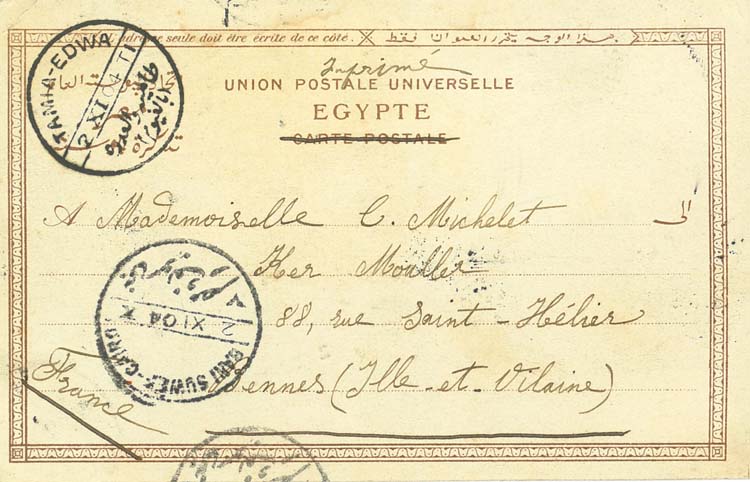 adresse seule doit être écrite de ce côté. هذا الوجه يحرر العنوان فقط
Imprimé
UNION POSTALE UNIVERSELLE
EGYPTE
CARTE POSTALE
TAMIA-EDWA
2 XI 04 T1
A Mademoiselle C. Michelet
الى
Ker Moullec
88, rue Saint-Hélier
Rennes (Ille-et-Vilaine)
France
BANI SUWEF-CAIRO
2 XI 04